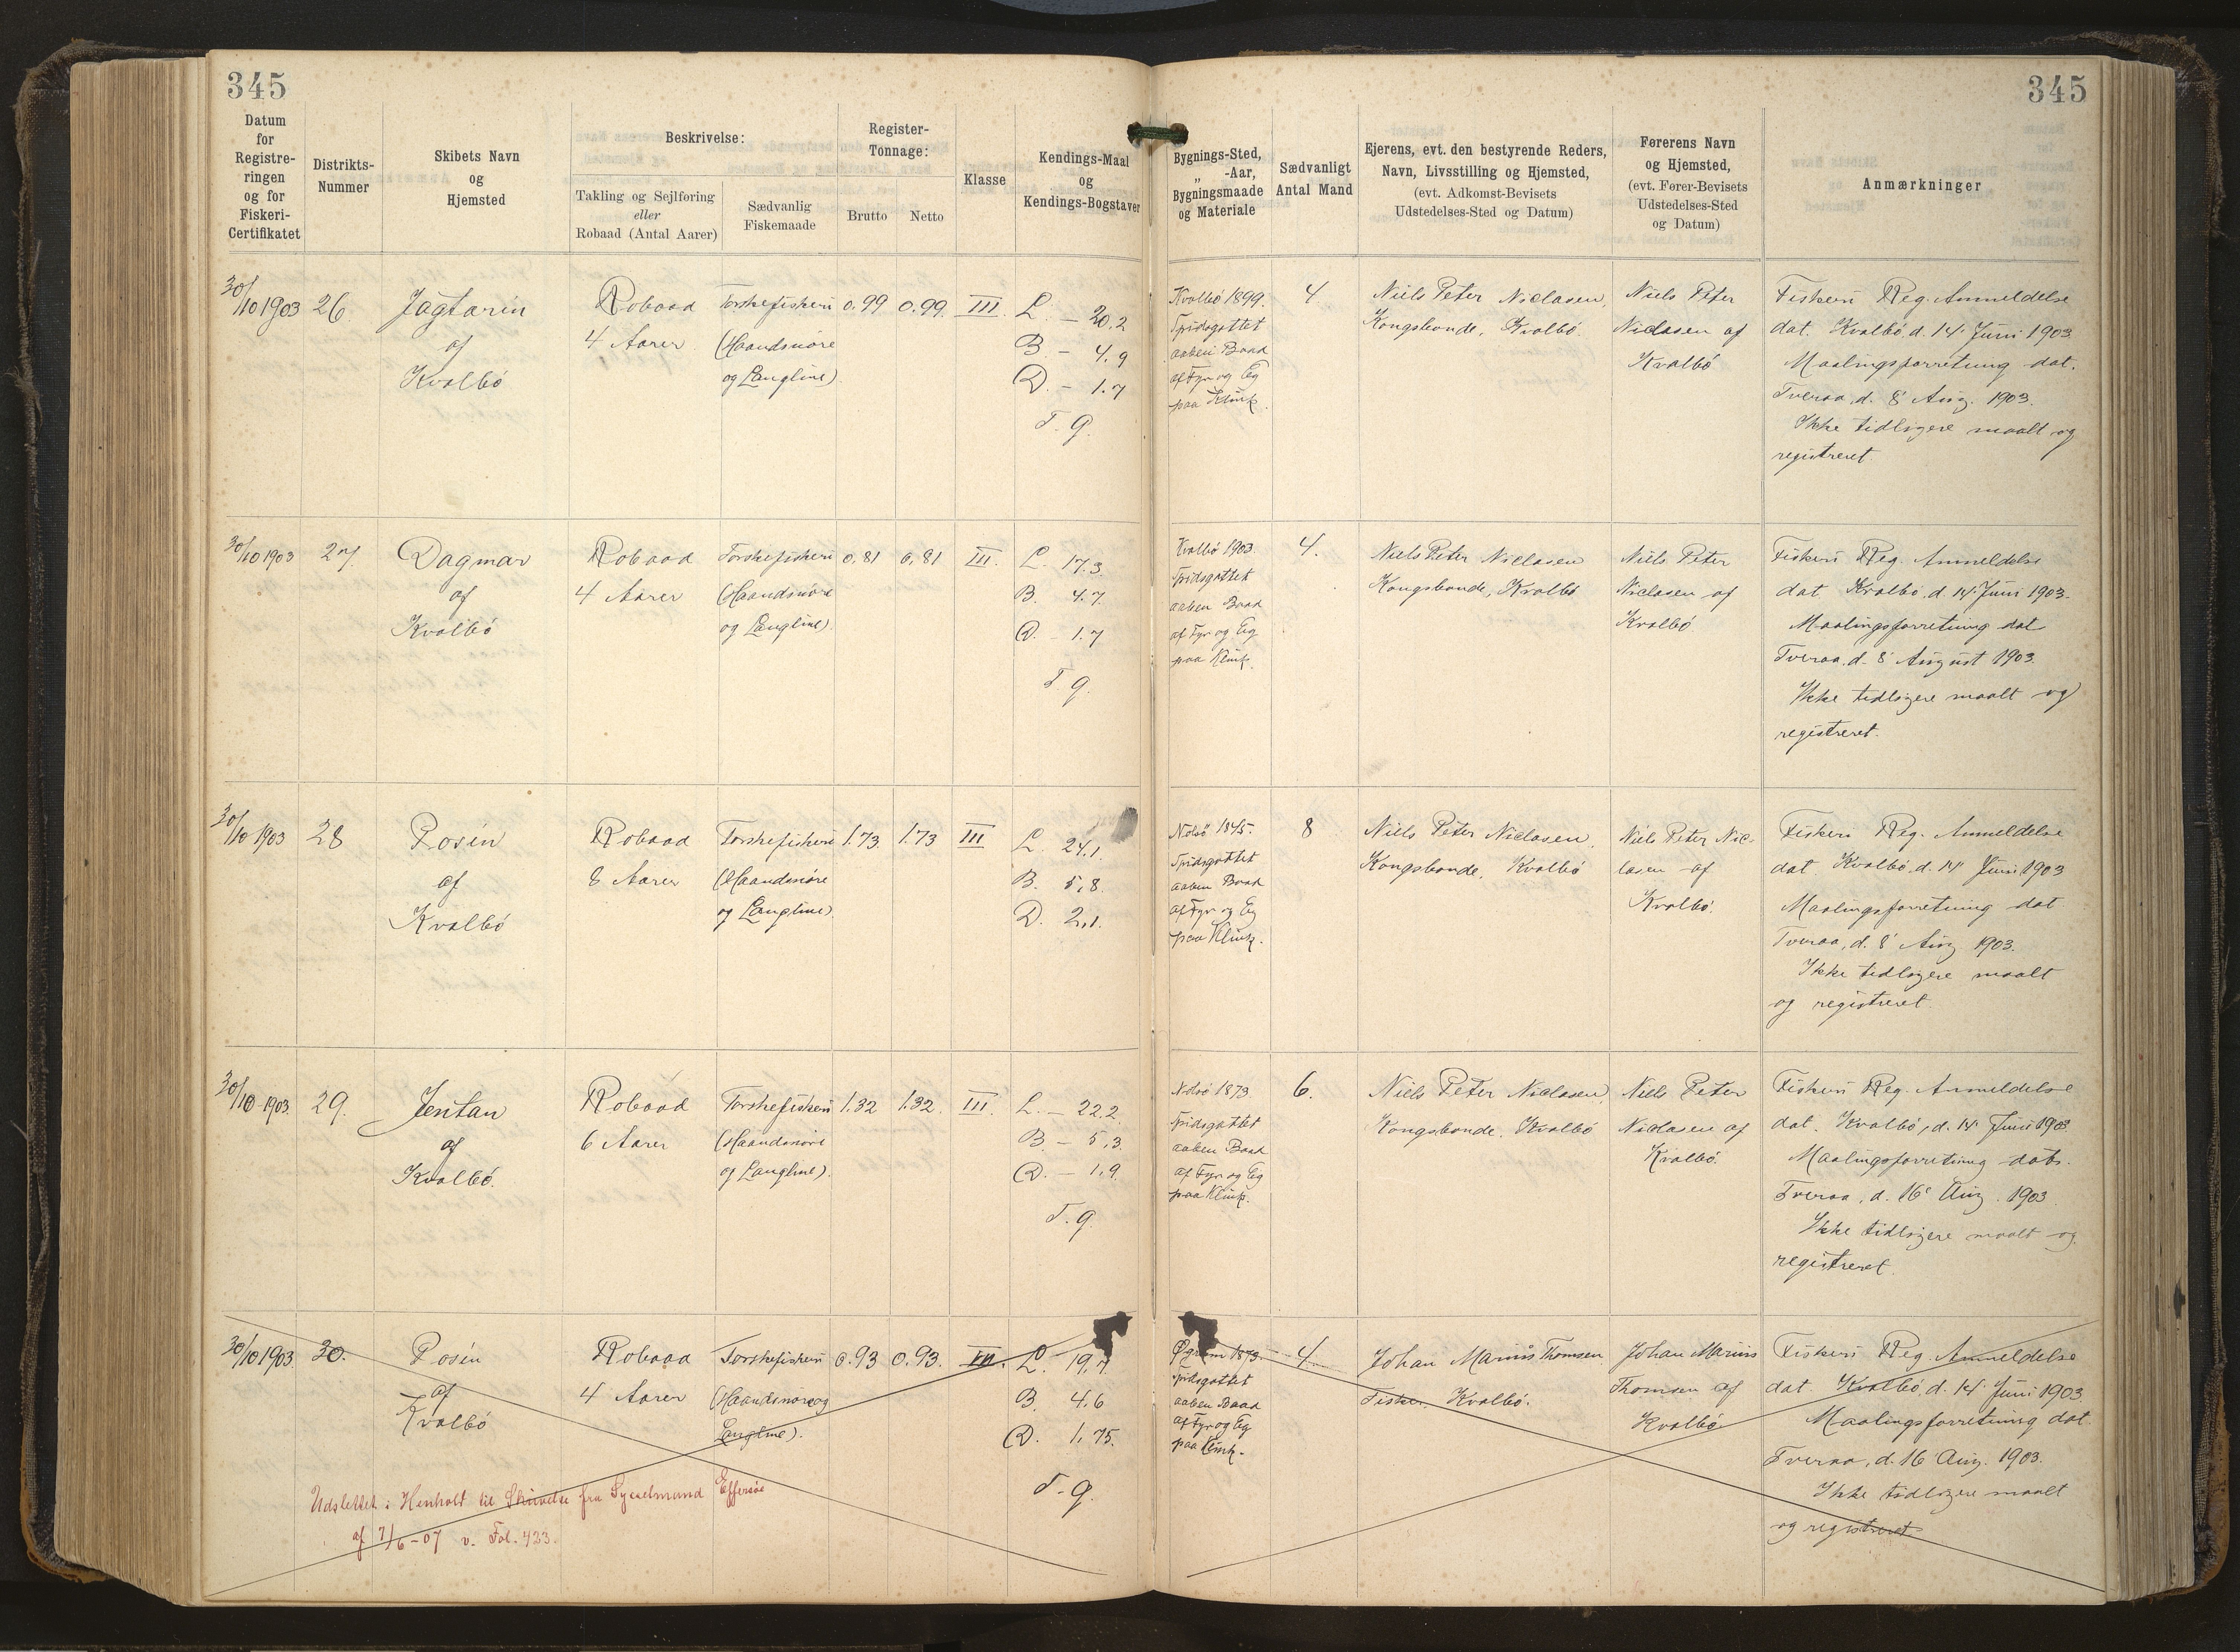 345
345
Datum
for
Registre-
ringen
og for
Fiskeri-
Certifikatet
Distrikts-
Nummer
Skibets Navn
og
Hjemsted
Beskrivelse:
Takling og Sejlføring
eller
Robaad (Antal Aarer)
Sædvanlig
Fiskemaade
Register-
Tonnage:
Brutto
Netto
Klasse
Kendings-Maal
og
Kendings-Bogstaver
Bygnings-Sted,
„ -Aar,
Bygningsmaade
og Materiale
Sædvanligt
Antal Mand
Ejerens, evt. den bestyrende Reders,
Navn, Livsstilling og Hjemsted,
(evt. Adkomst-Bevisets
Udstedelses-Sted og Datum)
Førerens Navn
og Hjemsted,
(evt. Fører-Bevisets
Udstedelses-Sted
og Datum)
Anmærkninger
30/10 1903
26
Jagtarin
af
Kvalbö
Robaad
4 Aarer
Torskefiskeri
(Haandsnöre
og Langline)
0.99
0.99
III.
L. – 20,2
B – 4,9
D. – 1.7
T. g.
Kvalbö 1899.
Spidsgattet
aaben Baad
af Fyr og Eg
paa Klink.
4
Niels Peter Niclasen,
Kongsbonde, Kvalbö.
Niels Peter
Niclasen af
Kvalbö
Fiskeri Reg. Anmeldelse
dat. Kvalbö d. 14' Juni 1903
Maalingsforretning dat.
Tveraa, d. 8' Aug. 1903.
Ikke tidligere maalt og
registreret.
30/10 1903
27
Dagmar
af
Kvalbö
Robaad
4 Aarer
Torskefiskeri
(Haandsnöre
og Langline).
0,81
0,81
III.
L. 17.3
B. 4.7.
D. – 1.7
T g.
Kvalbö 1903.
Spidsgattet
aaben Baad
af Fyr og Eg
paa Klink.
4.
Niels Peter Niclasen
Kongsbonde, Kvalbö
Niels Peter
Niclasen af
Kvalbö
Fiskeri Reg. Anmeldelse
dat Kvalbö, d. 14' Juni 1903.
Maalingsforretning dat
Tveraa, d. 8' August 1903.
Ikke tidligere maalt og
registreret.
30/10 1903
28
Rosin
af
Kvalbö
Robaad
8 Aarer
Torskefiskeri
(Haandsnöre
og Langline).
1.73
1.73
III
L. 24,1.
B. 5,8.
D. 2,1.
Nolsö 1845.
Spidsgattet
aaben Baad
af Fyr og Eg
paa Klink.
8
Niels Peter Niclasen,
Kongsbonde, Kvalbö
Niels Peter Nic-
lasen af
Kvalbö.
Fiskeri Reg. Anmeldelse
dat Kvalbö, d. 14' Juni 1903
Maalingsforretning dat
Tveraa, d. 8' Aug 1903.
Ikke tidligere maalt
og registreret.
30/10 1903.
29.
Jentan
af
Kvalbö.
Robaad
6 Aarer
Torskefiskeri
(Haandsnöre
og Langline).
1.32
1.32.
III.
L. – 22.2
B – 5,3.
D. – 1,9.
T. g.
Nolsö 1873
Spidsgattet
aaben Baad
af Fyr og Eg
paa Klink.
6.
Niels Peter Niclasen,
Kongsbonde. Kvalbö
Niels Peter
Niclasen af
Kvalbö.
Fiskeri Reg. Anmeldelse
dat. Kvalbö, d. 14' Juni 1903
Maalingsforretning dat.
Tveraa, d. 16' Aug. 1903
Ikke tidligere maalt og
registreret.
30/10 1903.
30.
Rosin
af
Kvalbö
Robaad
4 Aarer
Torskefiskeri
(Haandsnöre og
Langline).
0.93
0.93.
III.
L. 19,7
B. 4.6
D. 1,75.
T. g.
1873.
Spidsgattet
aaben Baad
af Fyr og Eg
paa Klink.
4
Johan Marius Thomsen
Fisker, Kvalbö.
Johan Marius
Thomsen af
Kvalbö
Fiskeri Reg. Anmeldelse
dat. Kvalbö, d. 14' Juni 1903
Maalingsforretning dat.
Tveraa, d. 16' Aug. 1903.
Ikke tidligere maalt
og registreret
Udslettet i Henhold til Skrivelse fra Sysselmand Effersöe
af 7/6 – 07 v. Fol. 433.